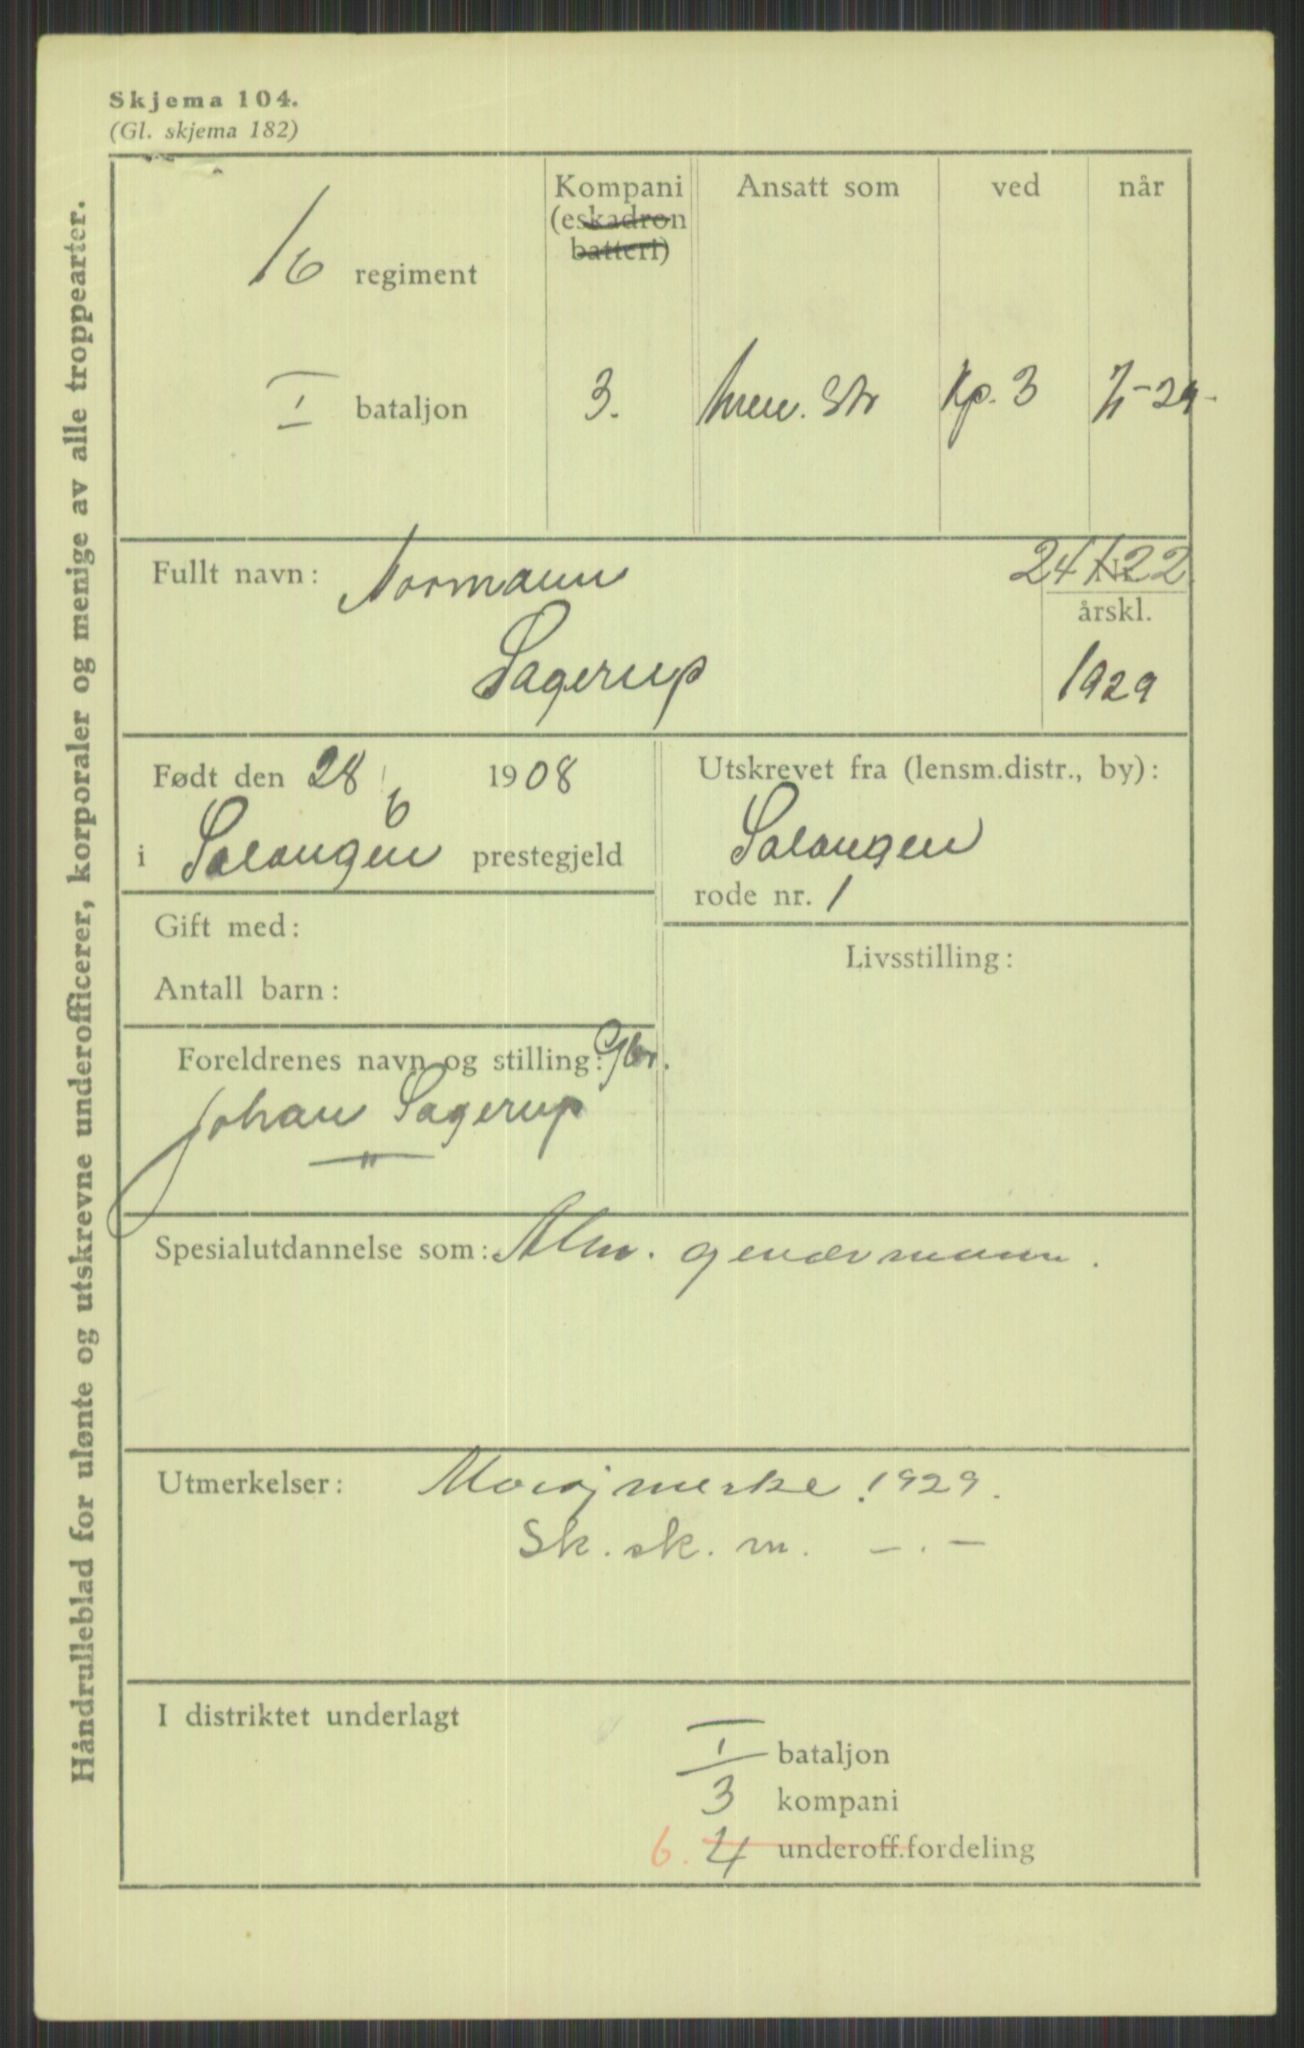 Skjema 104.
(Gl. skjema 182)
Håndrulleblad for ulønte og utskrevne underofficerer, korporaler og menige av alle troppearter.
Kompani Ansatt som ved når
(eskadron
batteri)
16 regiment
I bataljon 3. Kp. 3
Fullt navn: Normann
Sagerup
årskl.
1929
Født den 28/6 1908
i Salangen prestegjeld
Utskrevet fra (lensm.distr., by):
Salangen
rode nr. 1
Gift med:
Antall barn:
Livsstilling:
Foreldrenes navn og stilling: Gbr.
Johan Sagerup
"
Spesialutdannelse som: Alm. geværmann.
Utmerkelser: Marsjmerke 1929.
Sk. sk. m. - . -
I distriktet underlagt
I bataljon
3 kompani
6. 4 underoff.fordeling